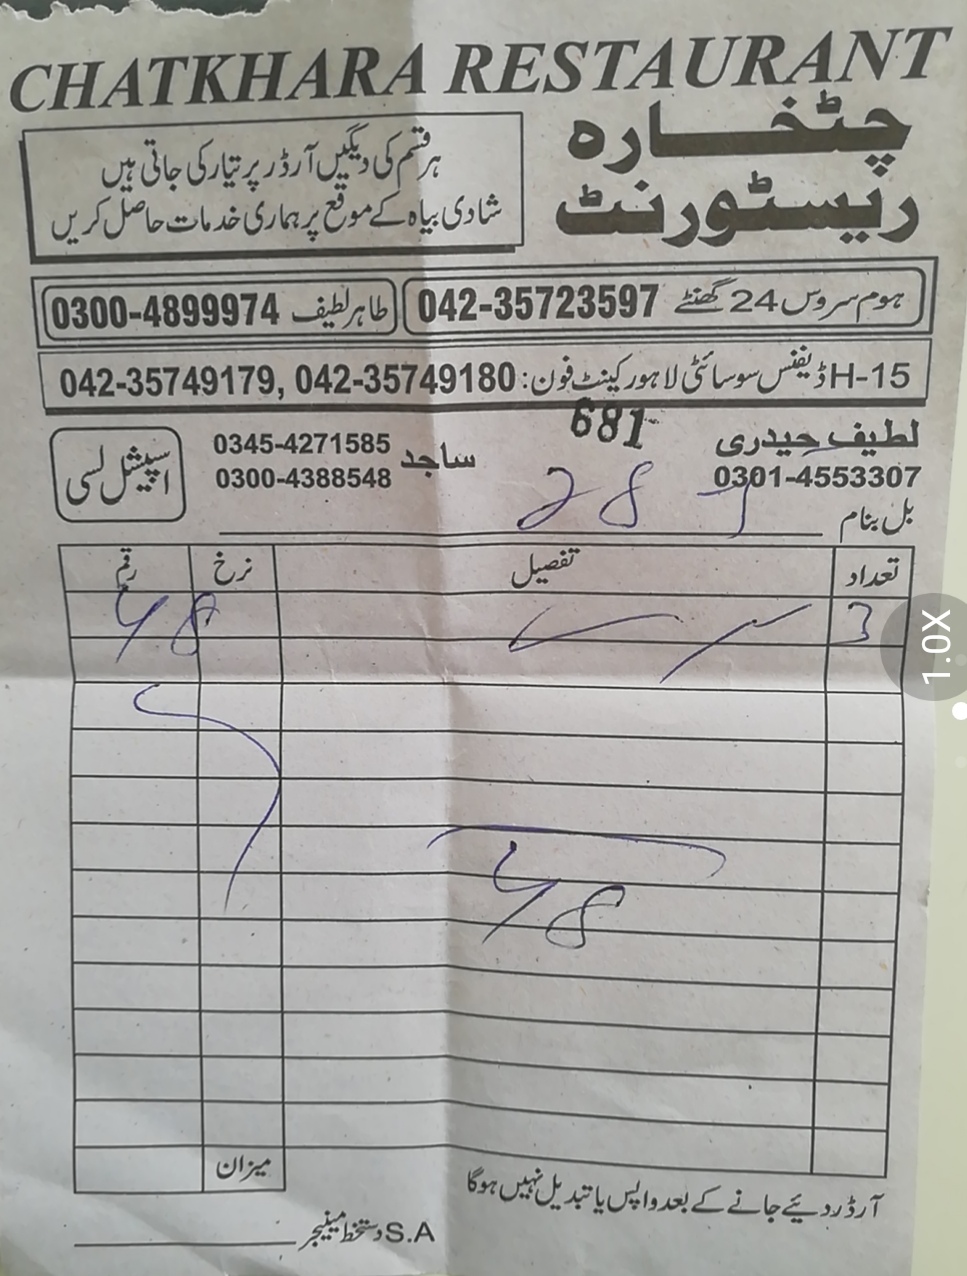 CHATKHARA RESTAURANT
چٹخارہ
ریسٹورنٹ
ہر قسم کی دیگیں آرڈر پر تیار کی جاتی ہیں
شادی بیاہ کے موقع پر ہماری خدمات حاصل کریں
ہوم سروس 24 گھنٹے 042-35723597
طاہر لطیف 0300-4899974
H-15 ڈیفنس سوسائٹی لاہور کینٹ فون: 042-35749179, 042-35749180
681
لطیف حیدری
0301-4553307
ساجد 0345-4271585
0300-4388548
اسپیشل لسی
بل بنام
28
تعداد تفصیل نرخ رقم
3
48
48
میزان
آرڈر دئیے جانے کے بعد واپس یا تبدیل نہیں ہوگا
S.A دستخط مینیجر
1.0X